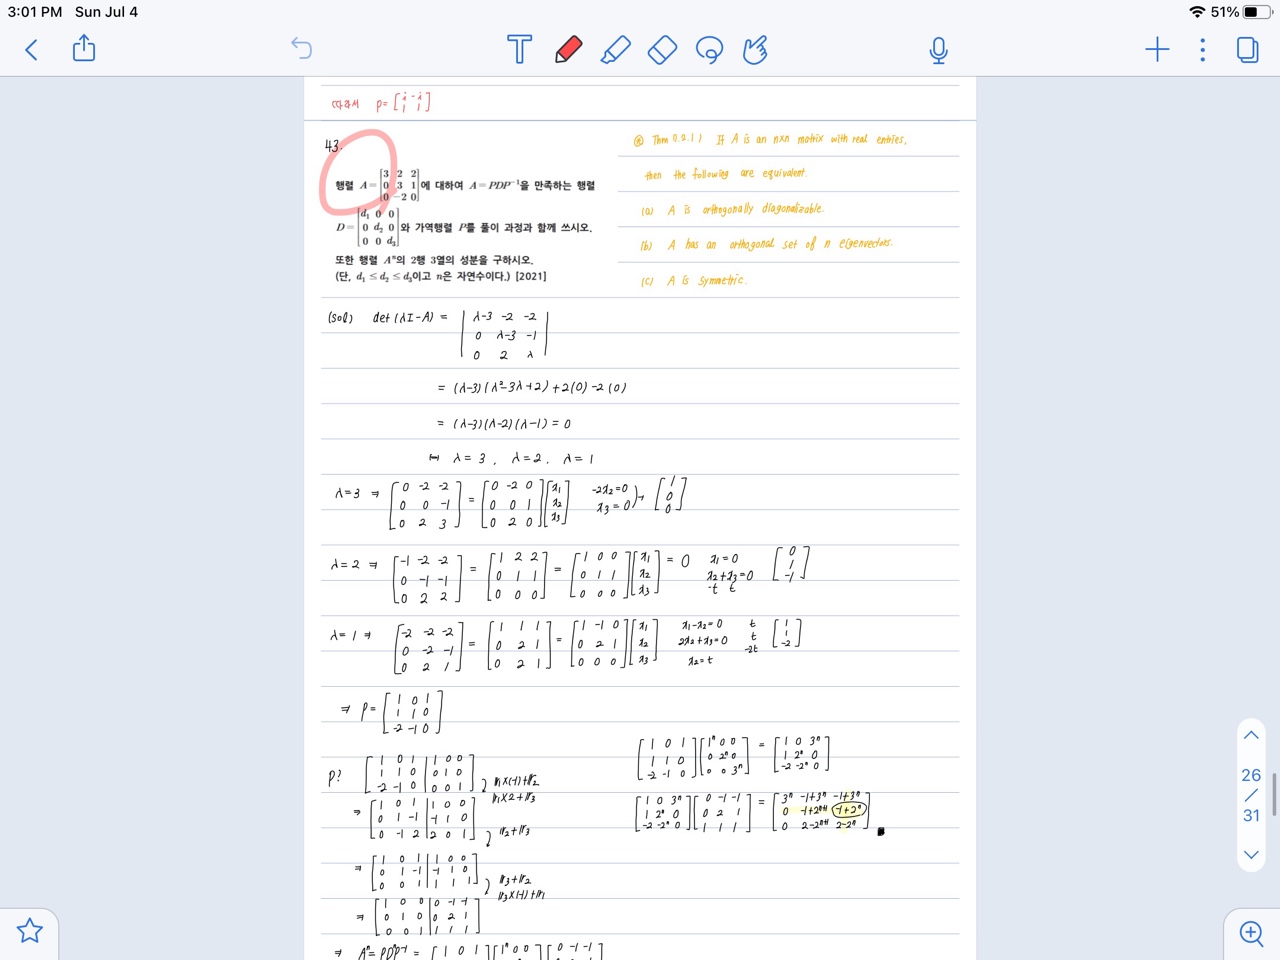 3:01 PM Sun Jul 4
51%
따라서 P= [i -i
1 1]
43.
행렬 A= [3 2 2
0 3 1
0 -2 0] 에 대하여 A=PDP⁻¹을 만족하는 행렬
D= [d₁ 0 0
0 d₂ 0
0 0 d₃] 와 가역행렬 P를 풀이 과정과 함께 쓰시오.
또한 행렬 Aⁿ의 2행 3열의 성분을 구하시오.
(단, d₁ ≤ d₂ ≤ d₃이고 n은 자연수이다.) [2021]
⊛ Thm 0.2.11 If A is an n×n matrix with real entries,
then the following are equivalent.
(a) A is orthogonally diagonalizable.
(b) A has an orthogonal set of n eigenvectors.
(c) A is symmetric.
(sol) det(λI-A) = | λ-3 -2 -2
0 λ-3 -1
0 2 λ |
= (λ-3)(λ²-3λ+2)+2(0)-2(0)
= (λ-3)(λ-2)(λ-1)=0
↔ λ=3, λ=2, λ=1
λ=3 ⇒ [0 -2 -2
0 0 -1
0 2 3] = [0 -2 0
0 0 1
0 2 0] [x₁
x₂
x₃] -2x₂=0
x₃=0 ) → [1
0
0]
λ=2 ⇒ [-1 -2 -2
0 -1 -1
0 2 2] = [1 2 2
0 1 1
0 0 0] = [1 0 0
0 1 1
0 0 0] [x₁
x₂
x₃] = 0 x₁=0
x₂+x₃=0
-t t [0
1
-1]
λ=1 ⇒ [-2 -2 -2
0 -2 -1
0 2 1] = [1 1 1
0 2 1
0 2 1] = [1 -1 0
0 2 1
0 0 0] [x₁
x₂
x₃] x₁-x₂=0 t
2x₂+x₃=0 t
x₂=t -2t [1
1
-2]
⇒ P= [1 0 1
1 1 0
-2 -1 0]
P? [1 0 1 | 1 0 0
1 1 0 | 0 1 0
-2 -1 0 | 0 0 1] r₁×(-1)+r₂
r₁×2+r₃
⇒ [1 0 1 | 1 0 0
0 1 -1 | -1 1 0
0 -1 2 | 2 0 1] r₂+r₃
⇒ [1 0 1 | 1 0 0
0 1 -1 | -1 1 0
0 0 1 | 1 1 1] r₃+r₂
r₃×(-1)+r₁
⇒ [1 0 0 | 0 -1 -1
0 1 0 | 0 2 1
0 0 1 | 1 1 1]
[1 0 1
1 1 0
-2 -1 0] [1ⁿ 0 0
0 2ⁿ 0
0 0 3ⁿ] = [1 0 3ⁿ
1 2ⁿ 0
-2 -2ⁿ 0]
[1 0 3ⁿ
1 2ⁿ 0
-2 -2ⁿ 0] [0 -1 -1
0 2 1
1 1 1] = [3ⁿ -1+3ⁿ -1+3ⁿ
0 -1+2ⁿ⁺¹ -1+2ⁿ
0 2-2ⁿ⁺¹ 2-2ⁿ]
⇒ Aⁿ=PDⁿP⁻¹ = [1 0 1] [1ⁿ 0 0] [0 -1 -1]
26
/
31